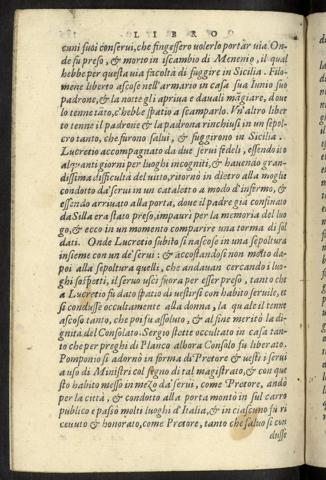 LIBRO
cuni suoi conserui, che fingessero uolerlo portar uia. On-
de fu preso, & morto in iscambio di Menenio, il qual
hebbe per questa uia facoltà di fuggire in Sicilia. Filo-
mene liberto ascose nell'armario in casa sua Iunio suo
padrone, & la notte gli apriua e dauali mãgiare, doue
lo tenne tãto, c'hebbe spatio a scamparlo. Vn'altro liber
to tenne il padrone & la padrona rinchiusi in un sepol-
cro tanto, che furono salui, & fuggirono in Sicilia.
Lucretio accompagnato da due serui fedeli, essendo ito
alquanti giorni per luoghi incogniti, & hauendo gran-
dissima difficultà del uito, ritornò in dietro alla moglie
condotto da serui in un cataletto a modo d'infermo, &
essendo arriuato alla porta, doue il padre già confinato
da Silla era stato preso, impaurì per la memoria del luo
go, & ecco in un momento comparire una torma di sol
dati. Onde Lucretio subito si nascose in una sepoltura
insieme con un de serui: & accostandosi non molto da-
poi alla sepoltura quelli, che andauan cercando i luo-
ghi sospetti, il seruo uscì fuora per esser preso, tanto che
a Lucretio fu dato spatio di uestirsi con habito seruile, et
si condusse occultamente alla donna, la quale il tenne
ascoso tanto, che poi fu assoluto, & al fine meritò la di-
gnità del Consolato. Sergio stette occultato in casa tan-
to che per preghi di Planco alhora Consolo fu liberato.
Pomponio si adornò in forma di Pretore & uestì i serui
a uso di Ministri col segno di tal magistrato, & con que
sto habito messo in mezo da serui, come Pretore, andò
per la città, & condotto alla porta montò in sul carro
publico e passò molti luoghi d'Italia, & in ciascuno fu ri
ceuuto & honorato, come Pretore, tanto che saluo si con
dusse